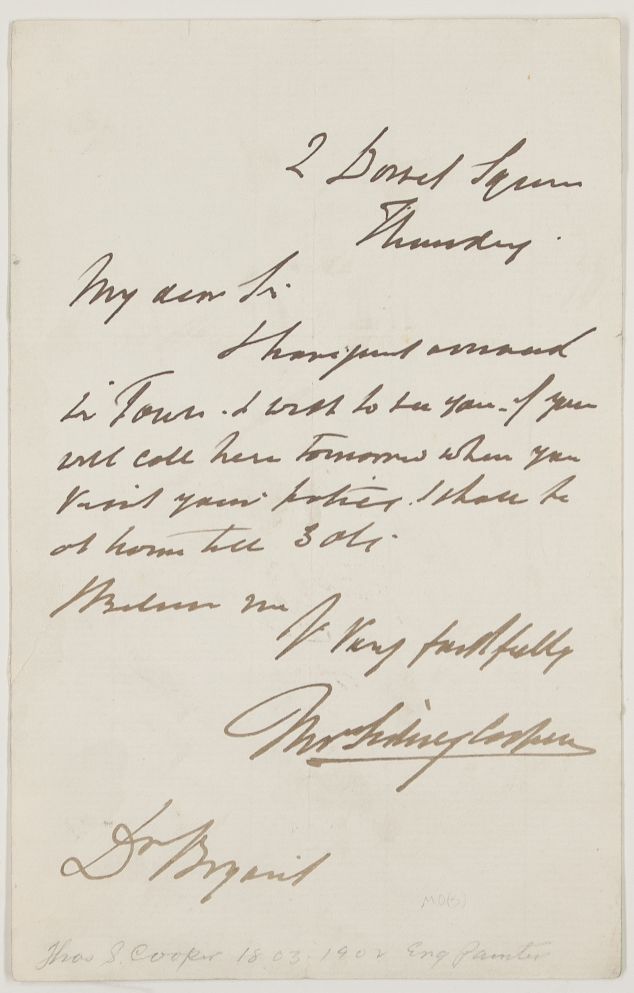 2 Dorset Square
Thursday.
My dear Sir
I have just arrived
in Town. I wish to see you. if you
will call here tomorrow when you
Visit your I shall be
at home till 3 o'clk.
Believe me
Yr Very faithfully
Thos Sidney Cooper
Dr Bryant
MO(3)
Thos S. Cooper 1803-1902 Eng Painter